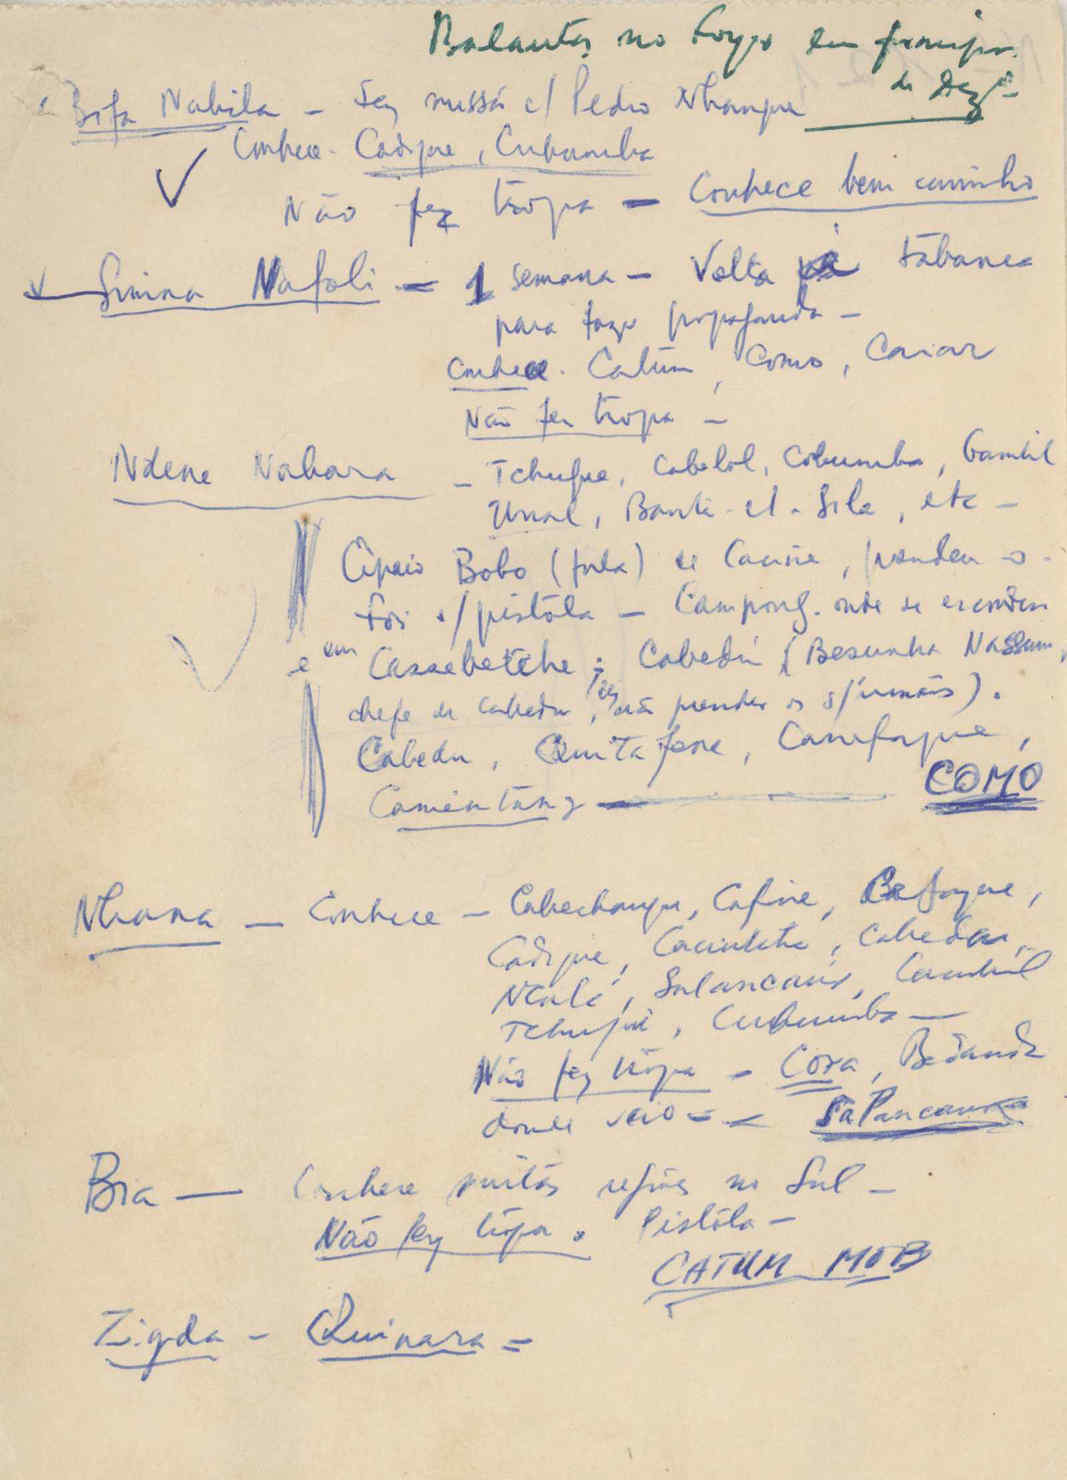 Balantas no Foyer em princípio
de Dezº
Bifa Nabila - Fez missão c/ Pedro Nhampa
Conhece - Cadique, Cubumba
Não fez tropa - Conhece bem caminho
Nafoli - 1 semana - Volta à tabanca
para fazer propaganda -
Conhece. Catum, Como, Caiar
Não fez tropa -
Ndene Nabara - Tchuque, Cabolol, Cobumba, Cambil
Unal, Banta-el-Sila, etc -
Cipaio Bobo (fula) de Cacine, prendeu-o -
Foi c/ pistola - onde se
e em Cassebetche; Cabedú (Besunha Nassum,
chefe de Cabedu, prender os s/irmãos).
Cabedu, Quitafene, Canefaque,
COMO
Nhana - Conhece - Cafine,
Cadique, Cabedu,
Ntalé, Salancaur,
Tchuqué, Cubumba -
Não fez tropa - Bedanda
donde veio = - Salancaur
Bia - Conhece muitas regiões no Sul -
Não fez tropa. Pistola -
CATUM MOB
Zigda - Quinara =